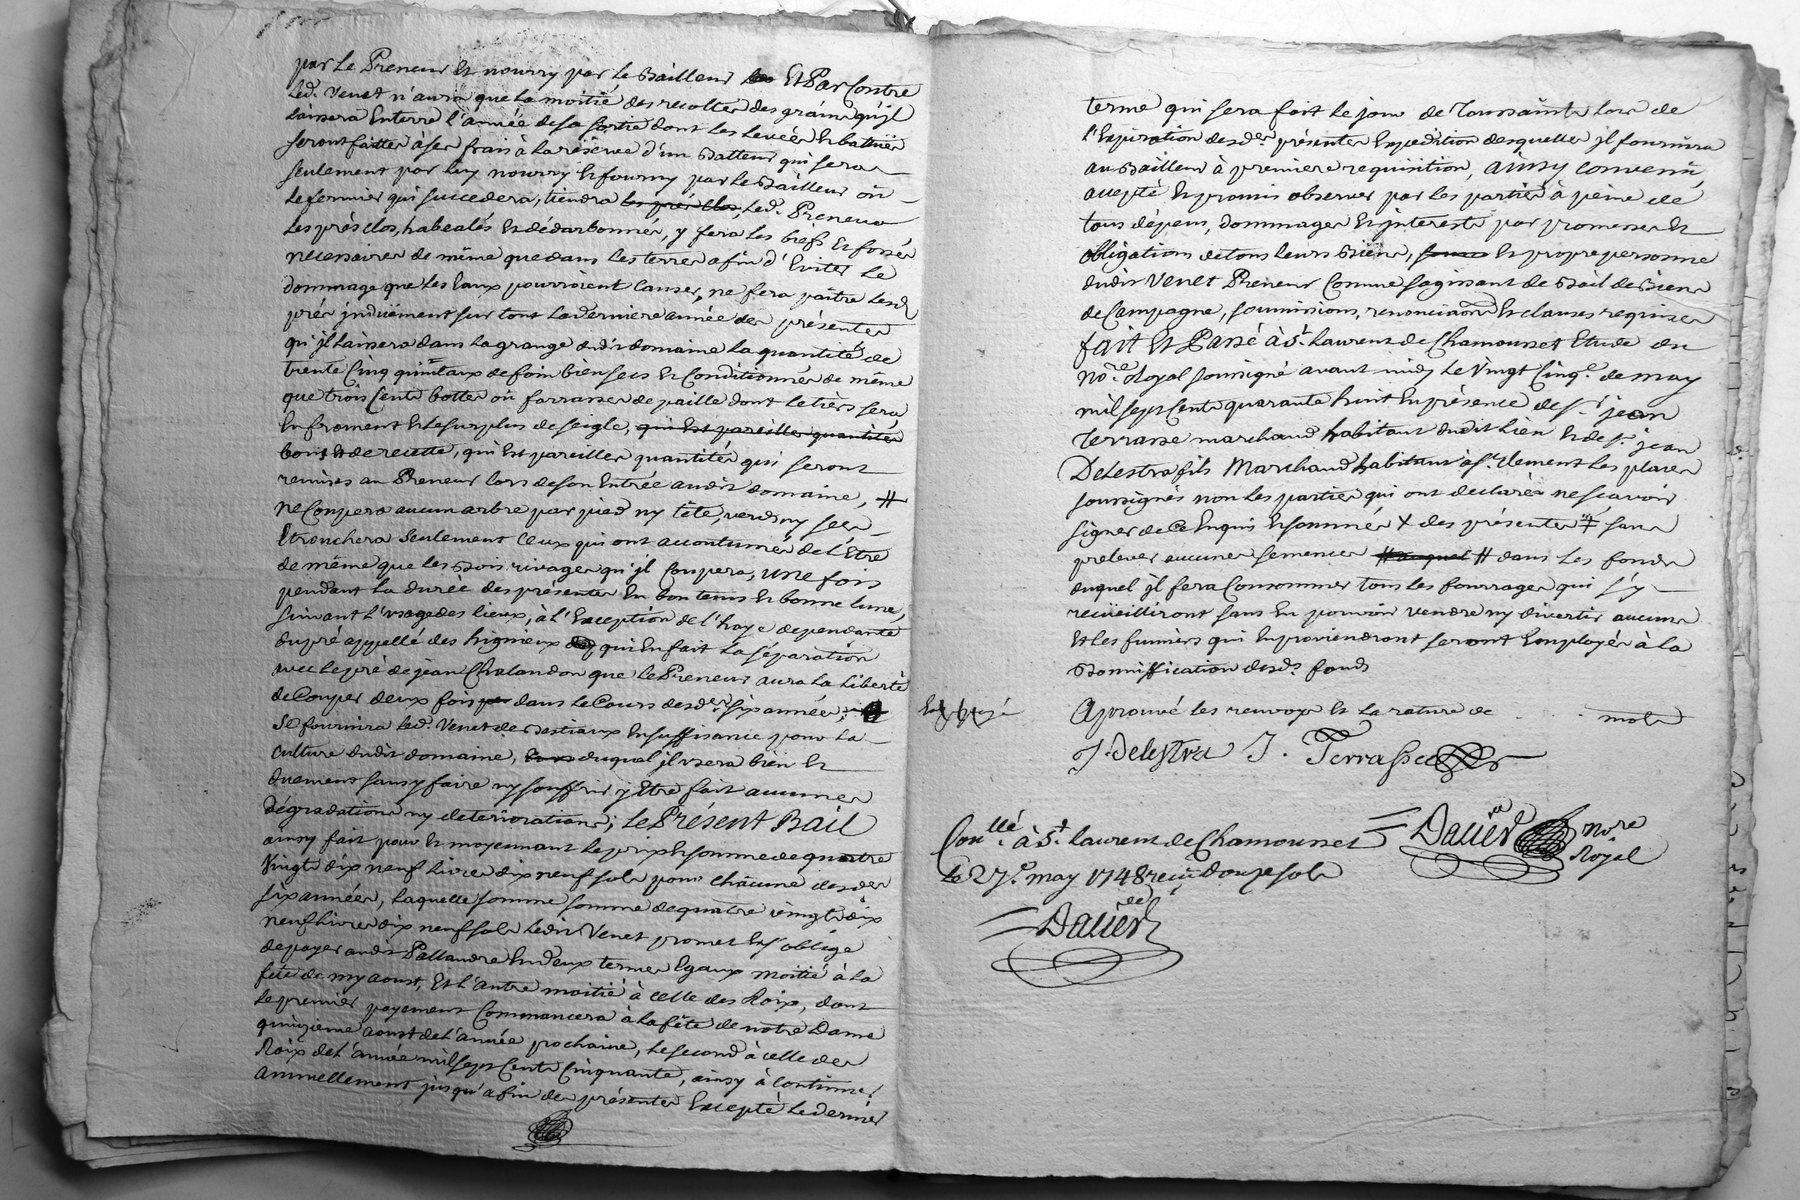 par le Preneur et nourry par le Bailleur et Par Contre
led. Venet n'aura que la moitié des recoltes des grains qu'jl
laissera enterre l'année de sa sortie dont les levées et battües
seront faittes à ses frais à la réserve d'un Batteur qui sera
seulement par luy nourry et fourny par le Bailleur où
le fermier qui succedera, tiendra les prés clos, led. Preneur
les prés clos, habealés et dédarbonnés, y fera les biefs et fossés
necessaires de même que dans les terres afin d'Eviter le
dommage que les Eaux pourroient causer, ne fera paître lesd.
prés jnduëment sur tout la derniere année des présentes
qu'jl laissera dans la grange dudit domaine la quantité de
trente Cinq quintaux de foin bien secs et Conditionnés de même
que trois Cents bottes où farrasses de paille dont le tiers sera
En froment et le surplus de seigle, qui est pareilles quantités
bons et de recette, qui est pareilles quantités qui seront
remises au Preneur lors de son Entrée audit domaine, #
ne Coupera aucun arbre par pied ny tête, verds ny secs
Etronchera seulement Ceux qui ont accoutumés de l'Etre
de même que les Bois rivages qu'jl Coupera, une fois
pendant la durée des présentes En bon tems et bonne lune,
suivant l'usage des lieux, à l'Exception de l'haye dependante
du pré appellé des hignieux qui En fait la séparation
avec le pré de jean Chalandon que le Preneur aura la liberté
de Couper deux fois dans le Cours desd. six années;
se fournira led. Venet de Bestiaux En suffisance pour la
culture dudit domaine, duquel jl usera bien et
duement sans y faire ny souffrir y Etre fait aucunes
dégradations ny deteriorations; le Présent Bail
ainsy fait pour et moyennant le prix et somme de quatre
Vingts dix neuf livres dix neuf sols pour chacune desdes
six années, laquelle somme somme de quatre vingts dix
neuf livres dix neuf sols ledit Venet promet et s'oblige
de payer audit Pallandre En deux termes Egaux moitié à la
fête de my aoust, Et l'autre moitié à celle des Roix, dont
le premier payement Commancera à la fête de notre Dame
quinzieme aoust de l'année prochaine, le second à celle des
Roix de l'année mil sept Cents Cinquante, ainsy à Continuer
annuellement jusqu'a fin des présentes Excepté le dernier
terme qui sera fait le jour de Toussaints lors de
l'Expiration desdes présentes Expedition desquelles jl fournira
au Bailleur à premiere requisition, ainsy convenu
accepté et promis observer par les parties à peine de
tous dépens, dommages et jnterests par promesses et
obligations de tous leurs Biens, et propre personne
dudit Venet Preneur Comme s'agissant de Bail de Biens
de Campagne, soumissions, renonciaons et clauses requises
fait et Passé à St. Laurent de Chamousset Etude du
No.re Royal soussigné avant midy le Vingt Cinq.e de may
mil sept Cents quarante huit En présence de Sr. jean
Terrasse marchand habitant dudit lieu et de Sr. jean
Delestra fils Marchand habitant à St. Clement les places
soussignés non les parties qui ont declarés ne scavoir
signer de Ce Enquis et sommés X des présentes # sans
prelever aucunes semences # dans les fonds
duquel jl fera Consommer tous les fourrages qui s'y
recueilliront sans En pouvoir vendre ny divertir aucuns
et les fumiers qui En proviendront seront Employés à la
Bonniffication desds. fonds
Aprouvé les renvoys et la rature de mots
J. Delestra J. Terrasse
Con.llé à St. Laurent de Chamousset
le 27.e may 1748 reçu douze sols
Dalier
no.re
Royal
Dalier